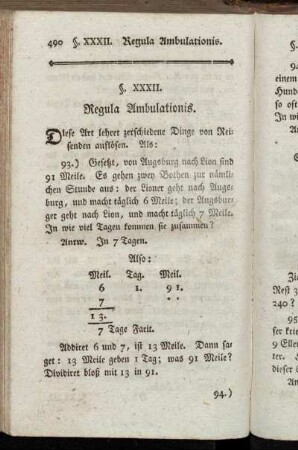 490 §. XXXII. Regula Ambulationis.
§. XXXII.
Regula Ambulationis.
Diese Art lehret verschiedene Dinge von Rei-
senden auflösen. Als:
93.) Gesetzt, von Augsburg nach Lion sind
91 Meile. Es gehen zwey Bothen zur nämli-
chen Stunde aus: der Lioner geht nach Augs-
burg, und macht täglich 6 Meile; der Augsbur-
ger geht nach Lion, und macht täglich 7 Meile.
In wie viel Tagen kommen sie zusammen?
Antw. In 7 Tagen.
Also:
Meil. Tag. Meil.
6 1. 91.
7
13.
7 Tage Facit.
Addiret 6 und 7, ist 13 Meile. Dann sa-
get: 13 Meile geben 1 Tag; was 91 Meile?
Dividiret bloß mit 13 in 91.
94.)
§.
94
einem
Hund
so oft
In wi
Zi
Rest 3
240?
95
9 Ellen
dieser